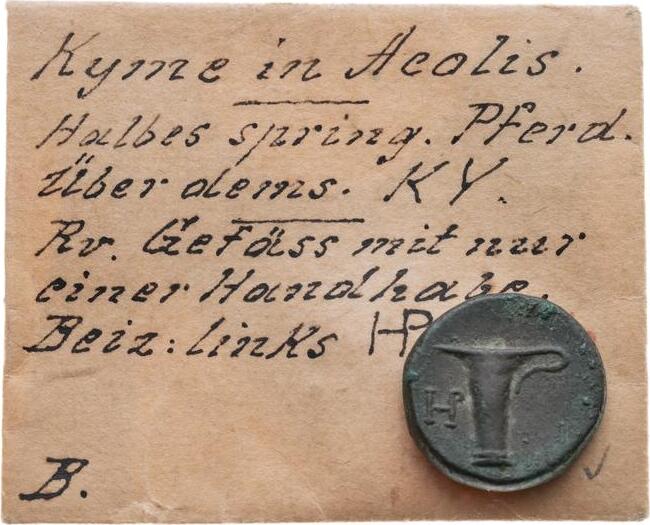 Kyme in Aeolis.
Halbes spring. Pferd.
Über dems. KY.
Rv. Gefäss mit nur
einer Handhabe.
Beiz: links HP
B.